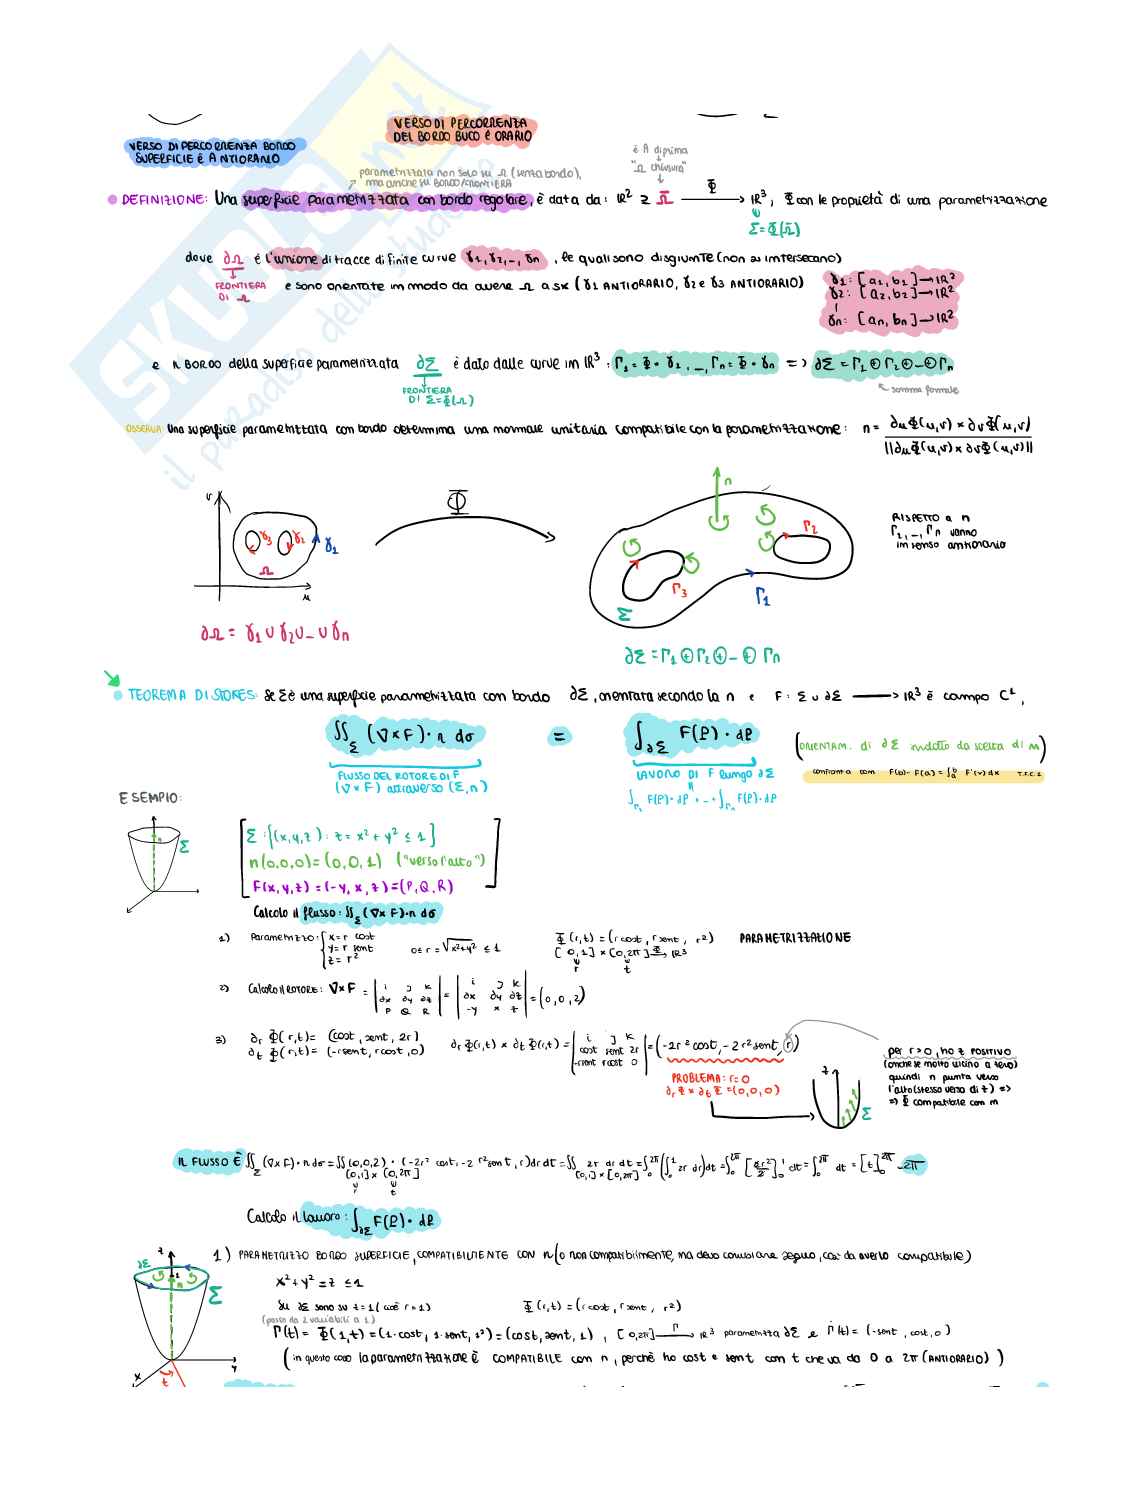 SKUOLA.net
il paradiso dello studente
VERSO DI PERCORRENZA BORDO
SUPERFICIE È ANTIORARIO
VERSO DI PERCORRENZA
DEL BORDO BUCO È ORARIO
parametrizzata non solo su Ω (senza bordo),
ma anche su BORDO/FRONTIERA
è Ω di prima
"Ω chiusura"
DEFINIZIONE: Una superficie parametrizzata con bordo regolare, è data da: IR² ⊇ Ω̄ —Φ→ IR³, Φ con le proprietà di una parametrizzazione
Σ=Φ(Ω̄)
dove ∂Ω è l'unione di tracce di finite curve γ1, γ2, _, γn, le quali sono disgiunte (non si intersecano)
FRONTIERA
DI Ω
e sono orientate in modo da avere Ω a sx (γ1 ANTIORARIO, γ2 e γ3 ANTIORARIO)
γ1: [a1, b1]→IR²
γ2: [a2, b2]→IR²
γn: [an, bn]→IR²
e il BORDO della superficie parametrizzata ∂Σ è dato dalle curve in IR³: Γ1 = Φ∘γ1, _, Γn = Φ∘γn => ∂Σ = Γ1⊕Γ2⊕–⊕Γn
FRONTIERA
DI Σ=Φ(Ω)
somma formale
OSSERVA: Una superficie parametrizzata con bordo determina una normale unitaria compatibile con la parametrizzazione: n = ∂uΦ(u,v) × ∂vΦ(u,v) / ||∂uΦ(u,v) × ∂vΦ(u,v)||
v
γ3 γ2 γ1
Ω
u
Φ
n
Γ2
Γ3
Γ1
Σ
RISPETTO a n
Γ2, _, Γn vanno
in senso antiorario
∂Ω = γ1 ∪ γ2 ∪ _ ∪ γn
∂Σ = Γ1 ⊕ Γ2 ⊕ – ⊕ Γn
TEOREMA DI STOKES: Se Σ è una superficie parametrizzata con bordo ∂Σ, orientata secondo la n e F: Σ ∪ ∂Σ → IR³ è campo C¹,
∬Σ (∇×F)·n dσ = ∫∂Σ F(P)·dP
(ORIENTAM. di ∂Σ indotto da scelta di n)
FLUSSO DEL ROTORE DI F
(∇×F) attraverso (Σ,n)
LAVORO DI F lungo ∂Σ
=
∫Γ1 F(P)·dP + – + ∫Γn F(P)·dP
confronta con F(b)-F(a) = ∫ab F'(x) dx T.F.C.I
ESEMPIO:
n
Σ
Σ: {(x,y,z): z = x² + y² ≤ 1}
n(0,0,0) = (0,0,1) ("verso l'alto")
F(x,y,z) = (-y, x, z) = (P,Q,R)
Calcolo il flusso: ∬Σ (∇×F)·n dσ
1) Parametrizzo: { x=r cost
y=r sent
z=r²
0≤r=√x²+y² ≤1
Φ(r,t)=(r cost, r sent, r²) PARAMETRIZZAZIONE
[0,1]×[0,2π] —Φ→ IR³
r t
2) Calcolo il ROTORE: ∇×F = | i j k | ∂x ∂y ∂z | P Q R | = | i j k | ∂x ∂y ∂z | -y x z | = (0,0,2)
3) ∂r Φ(r,t) = (cost, sent, 2r)
∂t Φ(r,t) = (-rsent, rcost, 0)
∂r Φ(r,t) × ∂t Φ(r,t) = | i j k | cost sent 2r | -rsent rcost 0 | = (-2r²cost, -2r²sent, r)
PROBLEMA: r=0
∂rΦ × ∂tΦ = (0,0,0)
z
Σ
per r>0, ho z POSITIVO
(anche se molto vicino a zero)
quindi n punta verso
l'alto (stesso verso di z) =>
=> Φ compatibile con n
IL FLUSSO È ∬Σ (∇×F)·n dσ = ∬[0,1]×[0,2π] (0,0,2)·(-2r²cost, -2r²sent, r) dr dt = ∬[0,1]×[0,2π] 2r dr dt = ∫0 2π (∫0 1 2r dr) dt = ∫0 2π [2r²/2]0 1 dt = ∫0 2π dt = [t]0 2π = 2π
r t
Calcolo il lavoro: ∫∂Σ F(P)·dP
1) PARAMETRIZZO BORDO SUPERFICIE, COMPATIBILMENTE CON n (o non compatibilmente, ma devo cambiare segno, così da averlo compatibile)
x² + y² = z ≤ 1
Su ∂Σ sono su z=1 (cioè r=1)
Φ(r,t) = (r cost, r sent, r²)
(passo da 2 variabili a 1)
Γ(t) = Φ(1,t) = (1·cost, 1·sent, 1²) = (cost, sent, 1), [0,2π] —Γ→ IR³ parametrizza ∂Σ e Γ'(t) = (-sent, cost, 0)
(in questo caso la parametrizzazione è COMPATIBILE con n, perché ho cost e sent con t che va da 0 a 2π (ANTIORARIO))
z
∂Σ
1
n
Σ
y
x
t